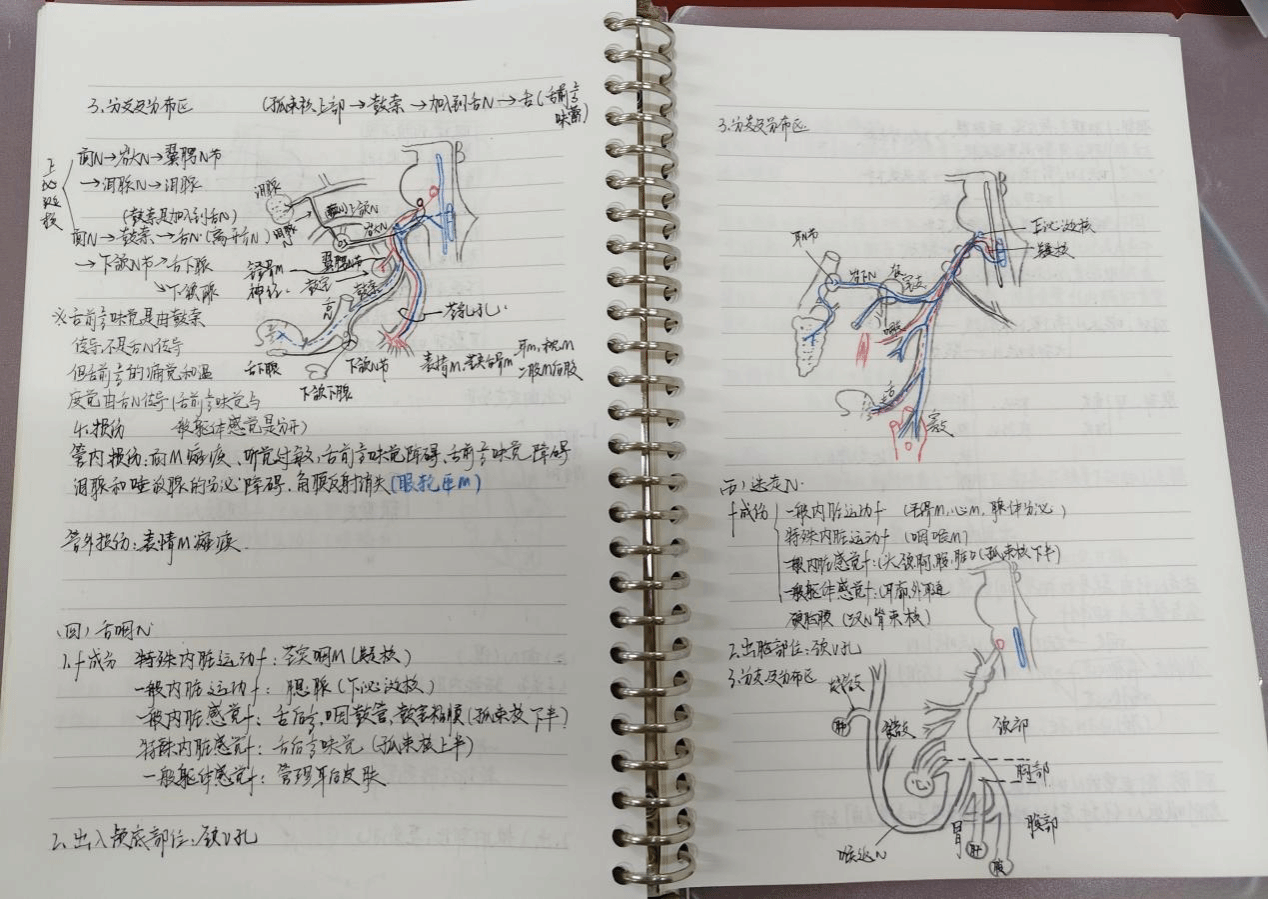 3.分支及分布区 (孤束核上部→鼓索→加入到舌N→舌(舌前⅔味蕾)
上泌涎核
面N→岩大N→翼腭N节
→泪腺N→泪腺
(鼓索是加入到舌N)
面N→鼓索→舌N(离开舌N)
→下颌N节→舌下腺
↘下颌腺
泪腺
泪腺N
上颌N
岩大N
翼腭N节
镫骨M
神经
鼓室
鼓索
舌N
茎乳孔
舌下腺
下颌N节
下颌下腺
表情M.茎突舌骨M 耳M.枕M
二腹M后腹
※舌前⅔味觉是由鼓索
传导,不是舌N传导
但舌前⅔的痛觉和温
度觉由舌N传导(舌前⅔味觉与
一般躯体感觉是分开)
4.损伤
管内损伤:面M瘫痪、听觉过敏,舌前⅔味觉障碍、舌前⅔味觉障碍
泪腺和唾液腺的分泌障碍、角膜反射消失(眼轮匝M)
管外损伤:表情M瘫痪.
(四)舌咽N
1.f成分 特殊内脏运动f:茎突咽M(疑核)
一般内脏运动f:腮腺(下泌涎核)
一般内脏感觉f:舌后⅓,咽鼓管,鼓室粘膜(孤束核下半)
特殊内脏感觉f:舌后⅓味觉(孤束核上半)
一般躯体感觉f:管理耳后皮肤
2.出入颅底部位:颈V孔
3.分支及分布区
下泌涎核
疑核
耳N节
岩下N
鼓室支
咽支
舌支
窦支
(五)迷走N.
f成分
一般内脏运动f (平滑M,心M,腺体分泌)
特殊内脏运动f (咽喉M)
一般内脏感觉f:(头,颈,胸,腹,脏器(孤束核下半)
一般躯体感觉f:(耳廓,外耳道
硬脑膜(三叉N脊束核)
2.出脑部位:颈V孔
3.分支及分布区
颈部
胸部
腹部
胃
肝
喉返N